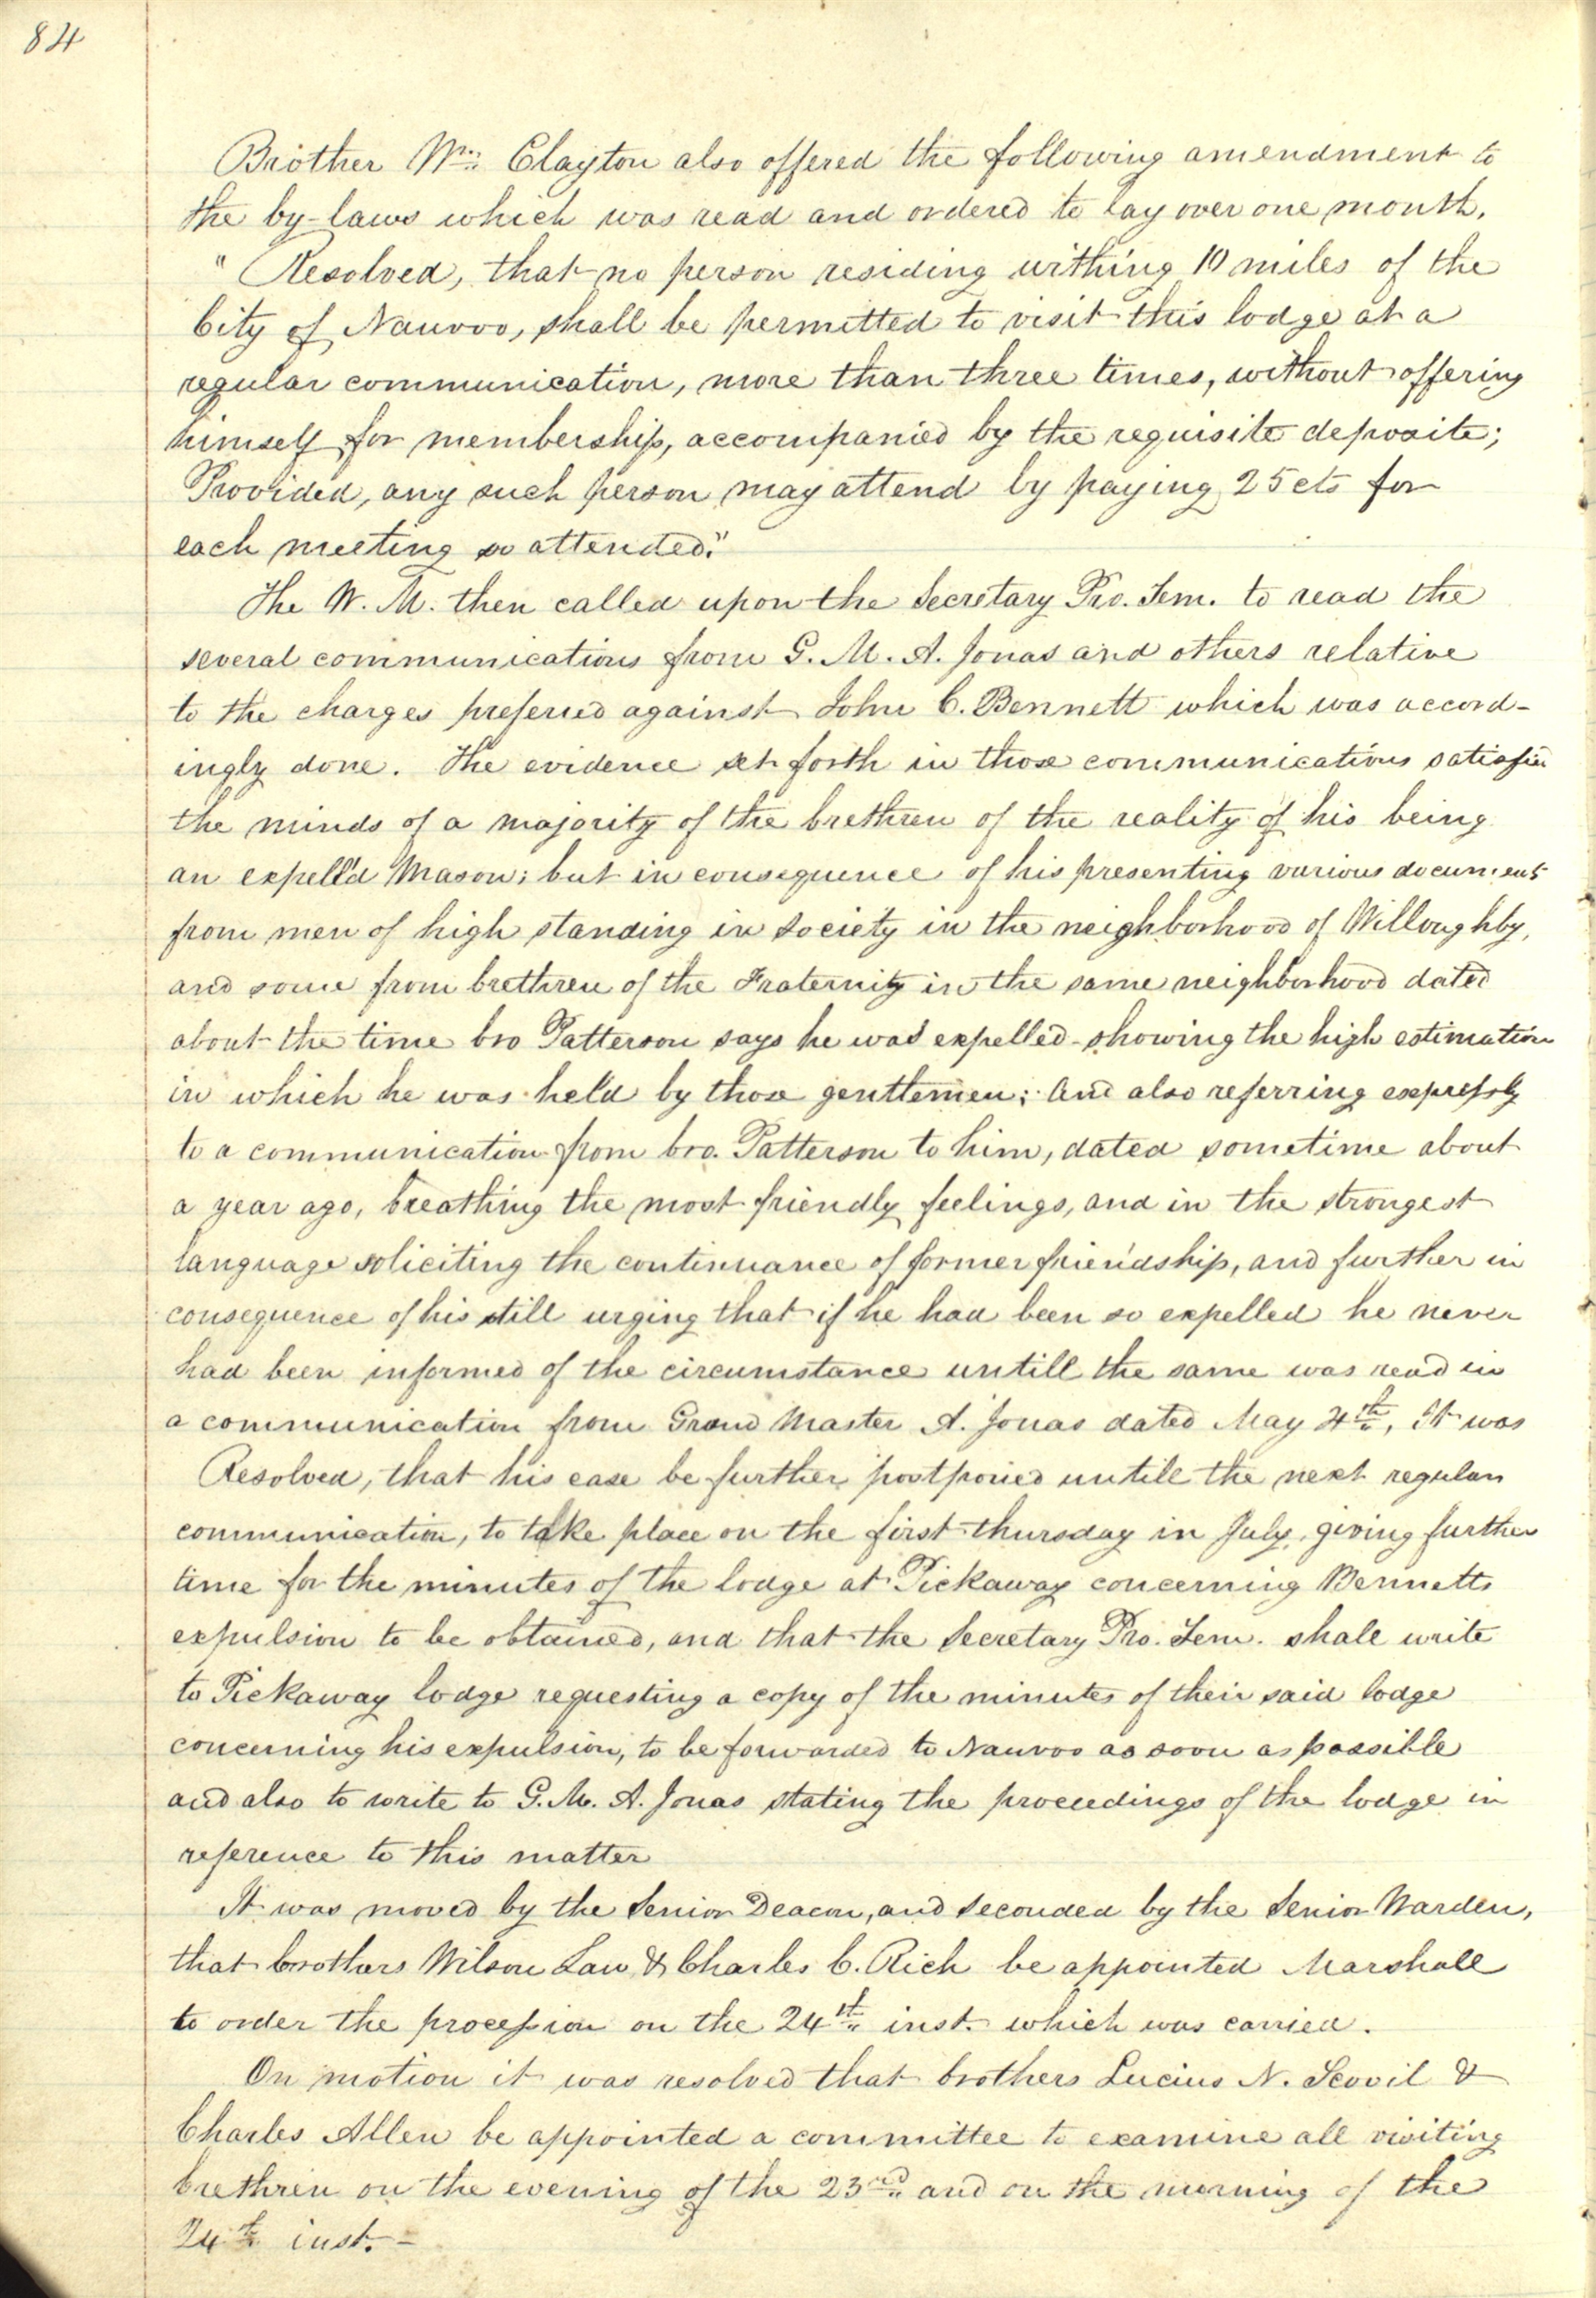 84
Brother Wm. Clayton also offered the following amendment to
the by-laws which was read and ordered to lay over one month.
"Resolved, that no person residing withing 10 miles of the
City of Nauvoo, shall be permitted to visit this lodge at a
regular communication, more than three times, without offering
himself for membership, accompanied by the requisite deposite;
Provided, any such person may attend by paying 25 cts for
each meeting so attended."
The W. M. then called upon the Secretary Pro. Tem. to read the
several communications from G. M. A. Jonas and others relative
to the charges preferred against John C. Bennett which was accord-
ingly done. The evidence set forth in those communications satisfied
the minds of a majority of the brethren of the reality of his being
an expell'd Mason; but in consequence of his presenting various documents
from men of high standing in society in the neighborhood of Willoughby,
and some from brethren of the Fraternity in the same neighborhood dated
about the time bro Patterson says he was expelled - showing the high estimation
in which he was held by those gentlemen; And also referring expressly
to a communication from bro. Patterson to him, dated sometime about
a year ago, breathing the most friendly feelings, and in the strongest
language soliciting the continuance of former friendship, and further in
consequence of his still urging that if he had been so expelled he never
had been informed of the circumstance untill the same was read in
a communication from Grand Master A. Jonas dated May 4th, it was
Resolved, that his case be further postponed untill the next regular
communication, to take place on the first thursday in July, giving further
time for the minutes of the lodge at Pickaway concerning Bennetts
expulsion to be obtained, and that the Secretary Pro. Tem. shall write
to Pickaway lodge requesting a copy of the minutes of their said lodge
concerning his expulsion, to be forwarded to Nauvoo as soon as possible
and also to write to G. M. A. Jonas stating the proceedings of the lodge in
reference to this matter
It was moved by the Senior Deacon, and seconded by the Senior Warden,
that brothers Wilson Law & Charles C. Rich be appointed Marshall
to order the procession on the 24th inst. which was carried.
On motion it was resolved that brothers Lucius N. Scovil &
Charles Allen be appointed a committee to examine all visiting
brethren on the evening of the 23rd and on the morning of the
24th inst. -